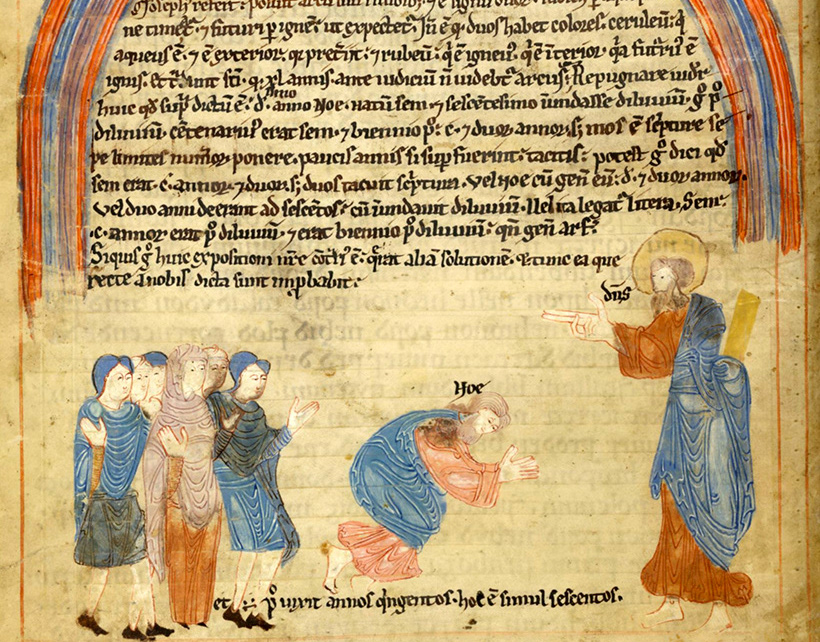 Joseph refert
ne timet᷑ ⁊ futuri p ignē; ut expectet᷑. Jn̄ ē q̇ duos habet colores. ceruleū; q̇
aqueus ē; ⁊ ē exterior; qr p̄terit; ⁊ rubeū; q̇ ē igne᷒; q̇ ē iterior; q̇a futur᷒ ē
ignis. sc̄i. q̇ .xl. annis. ante iudiciū n̄ uidebit᷑ arcus; Repugnare uidet᷑
huic qd̄ sup̄ dictū ē. .d. anno Noe. natū sem. ⁊ sescētesimo inundasse diluuiū. g̊ p̊
diluuiū. cētenari᷒ erat sem. ⁊ biennio p̊. c. ⁊ duoꝝ annoꝝ. s; mos ē sc̄pture se
pe limites numeroꝝ ponere. paucis annis si supfuerint tacitis. potest g̊ dici qd̄
sem erat .c. annoꝝ. ⁊ duoꝝ. s; duos tacuit sc̄ptura. Vel noe cū gen̄ eū .d. ⁊ duoꝝ annoꝝ.
Vel duo anni deerant ad sescētos. cū inundauit diluuiū. Uel ita legat᷑ litera. Sem
.c. annoꝝ erat p̊ diluuiū. ⁊ erat biennio p̊ diluuiū. qn̄ gen̄ arf.
Siquis g̊ huic expositioni nr̄e ē. q̄rat aliā solutionē. ⁊ tunc ea que
recte a nobis dicta sunt inp̄babit.
dn̄s
Noe
et p̊ uixit annos q̇ngentos. hoc ē simul sescentos.